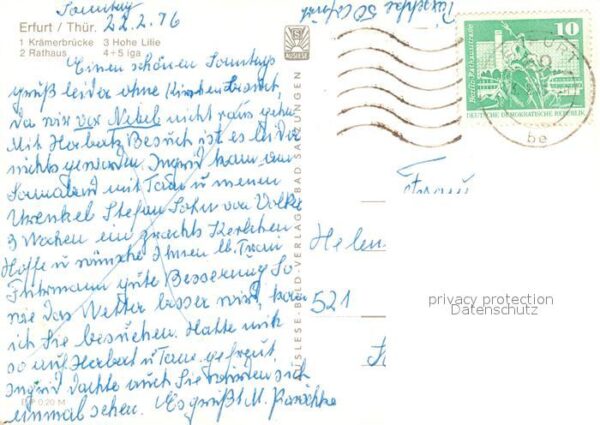 Sonntag
22.2.76
Erfurt / Thür.
1 Krämerbrücke 3 Hohe Lilie
2 Rathaus 4+5 iga
AUSLESE
Einen schönen Sonntags
gruß leider ohne
da wir vor Nebel nicht raus gehn
Mit Herbert Besuch ist es leider
nichts geworden. Ingrid kam am
Sonnabend mit Tom u meinen
Urenkel Stefan Sohn von Volker
3 Wochen ein Kerlchen
Hoffe u wünsche Ihnen lb. Frau
Fuhrmann gute Besserung So
wie das Wetter besser wird, kom
ich Sie besuchen. Hatte mich
so auf Herbert u Tom gefreut,
Ingrid dachte auch Sie würden sich
einmal sehen. Es grüßt M.
0,20 M
AUSLESE-BILD-VERLAG BAD SALZUNGEN
10
Berlin, Rathausstraße
DEUTSCHE DEMOKRATISCHE REPUBLIK
be
Frau
Helen
521
privacy protection
Datenschutz